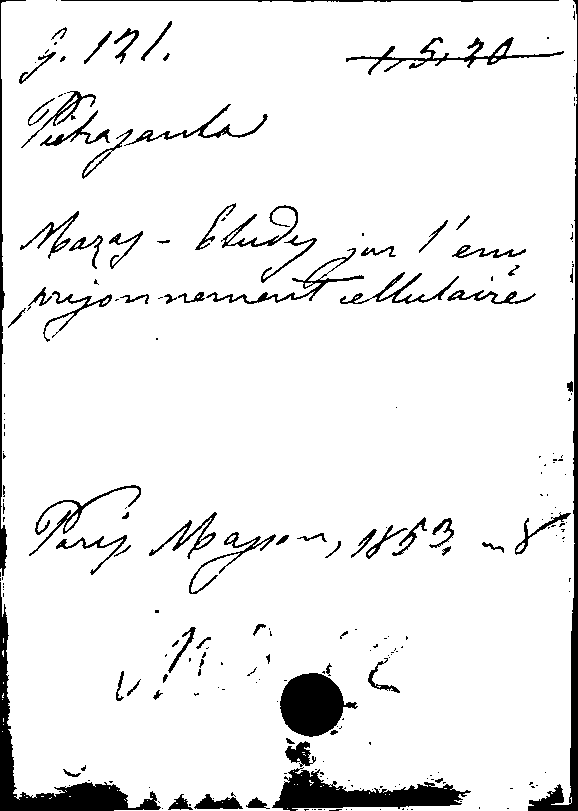 g. 121. 1,5,20
Pietrasanta
Mazas - Etudes sur l'em
prisonnement cellulaire
Paris, Masson, 1853. in 8